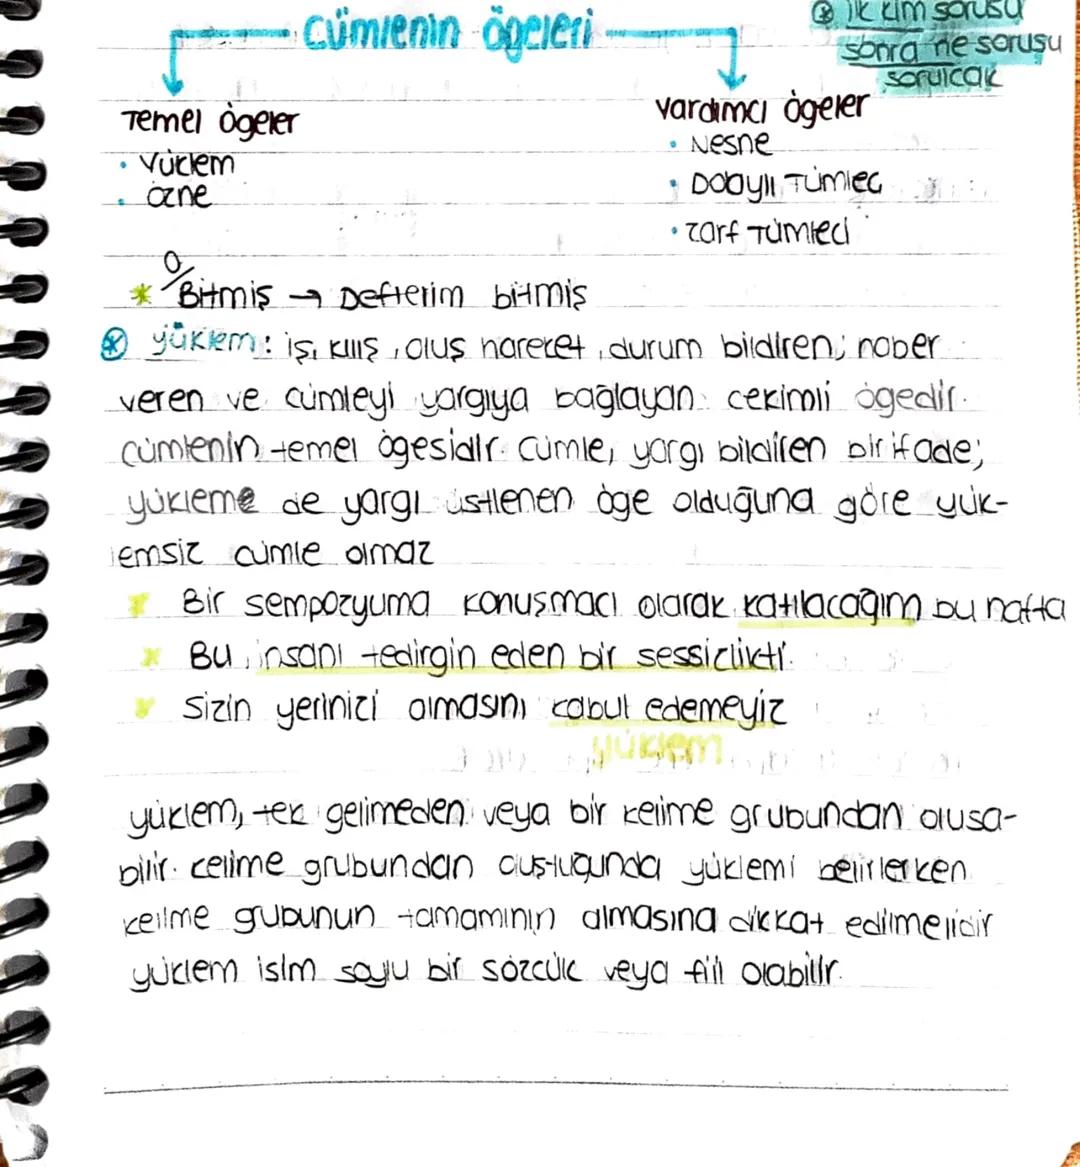 Cümlenin ögeleri
ilk kim sorusu
sonra ne sorusu
sorulcak
Temel ögeler
• Yüklem
• özne
Yardımcı ögeler
• Nesne
• Dolaylı Tümlec
• Zarf Tümleci
* Bitmiş → Defterim bitmiş
yüklem: iş, kılış, oluş hareket, durum bildiren; haber
veren ve cümleyi yargıya bağlayan çekimli ögedir.
Cümlenin temel ögesidir. Cümle, yargı bildiren bir ifade;
yükleme de yargı üstlenen öge olduğuna göre yük-
lemsiz cümle olmaz
* Bir sempozyuma konuşmacı olarak katılacağım bu hafta
* Bu, insanı tedirgin eden bir sessizlikti.
* Sizin yerinizi almasını kabul edemeyiz
yüklem
yüklem, tek gelimeden veya bir kelime grubundan olusa-
bilir. Kelime grubundan oluştuğunda yüklemi belirlerken
kelime grubunun tamamının alınmasına dikkat edilmelidir
yüklem isim soylu bir sözcük veya fiil olabilir.